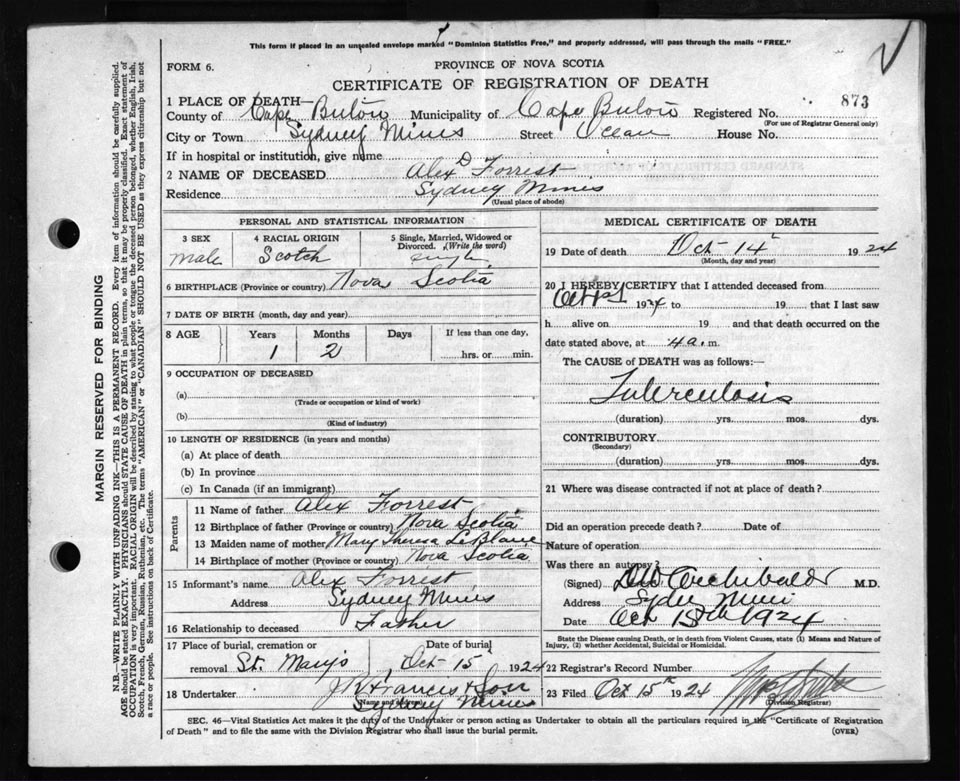 This form if placed in an unsealed envelope marked "Dominion Statistics Free," and properly addressed, will pass through the mails "FREE."
FORM 6.
PROVINCE OF NOVA SCOTIA
CERTIFICATE OF REGISTRATION OF DEATH
873
1 PLACE OF DEATH—
County of Cape Breton Municipality of Cape Breton Registered No.
(For use of Registrar General only)
City or Town Sydney Mines Street Ocean House No.
If in hospital or institution, give name
2 NAME OF DECEASED Alex D Forrest
Residence Sydney Mines
(Usual place of abode)
PERSONAL AND STATISTICAL INFORMATION
3 SEX 4 RACIAL ORIGIN 5 Single, Married, Widowed or Divorced. (Write the word)
male Scotch single
6 BIRTHPLACE (Province or country) Nova Scotia
7 DATE OF BIRTH (month, day, and year)
8 AGE Years Months Days If less than one day,
1 2 hrs. or min.
9 OCCUPATION OF DECEASED
(a)
(Trade or occupation or kind of work)
(b)
(Kind of industry)
10 LENGTH OF RESIDENCE (in years and months)
(a) At place of death
(b) In province
(c) In Canada (if an immigrant)
Parents
11 Name of father Alex Forrest
12 Birthplace of father (Province or country) Nova Scotia
13 Maiden name of mother Mary Theresa LeBlanc
14 Birthplace of mother (Province or country) Nova Scotia
15 Informant's name Alex Forrest
Address Sydney Mines
16 Relationship to deceased Father
17 Place of burial, cremation or removal St. Mary's Date of burial Oct 15 1924
18 Undertaker J R Francis & Son
(Name and address) Sydney Mines
MEDICAL CERTIFICATE OF DEATH
19 Date of death Oct 14 1924
(Month, day and year)
20 I HEREBY CERTIFY that I attended deceased from
1924 to 19 that I last saw
h alive on 19 and that death occurred on the
date stated above, at 4 a. m.
The CAUSE of DEATH was as follows:—
Tuberculosis
(duration) yrs. mos. dys.
CONTRIBUTORY
(Secondary)
(duration) yrs. mos. dys.
21 Where was disease contracted if not at place of death?
Did an operation precede death? Date of
Nature of operation
Was there an autopsy?
(Signed) Archibald M.D.
Address Sydney Mines
Date Oct 15th 1924
State the Disease causing Death, or in death from Violent Causes, state (1) Means and Nature of Injury, (2) whether Accidental, Suicidal or Homicidal.
22 Registrar's Record Number
23 Filed Oct 15th 1924
(Division Registrar)
SEC. 46—Vital Statistics Act makes it the duty of the Undertaker or person acting as Undertaker to obtain all the particulars required in the "Certificate of Registration
of Death" and to file the same with the Division Registrar who shall issue the burial permit. (OVER)
MARGIN RESERVED FOR BINDING
N.B.—WRITE PLAINLY WITH UNFADING INK—THIS IS A PERMANENT RECORD. Every item of information should be carefully supplied.
AGE should be stated EXACTLY. PHYSICIANS should STATE CAUSE OF DEATH in plain terms, so that it may be properly classified. Exact statement of
OCCUPATION is very important. RACIAL ORIGIN will be described by stating to what people or tongue the deceased person belonged, whether English, Irish,
Scotch, French, German, Russian, Ruthenian, etc. The terms "AMERICAN" or "CANADIAN" SHOULD NOT BE USED as they express citizenship but not
a race or people. See instructions on back of Certificate.